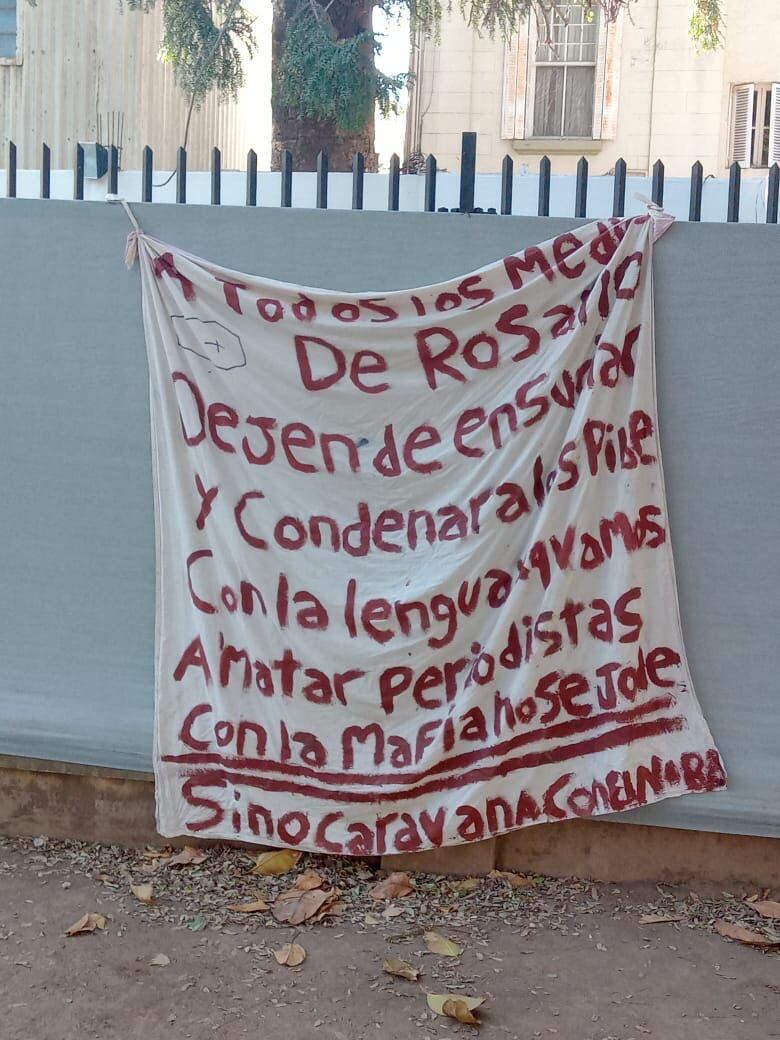 A Todos los Medi
De Rosario
Dejen de ensuciar
Y Condenar a los Pibe
Con la lengua qvamos
A Matar Periodistas
Con la Mafia no Se Jode
Sino caravana